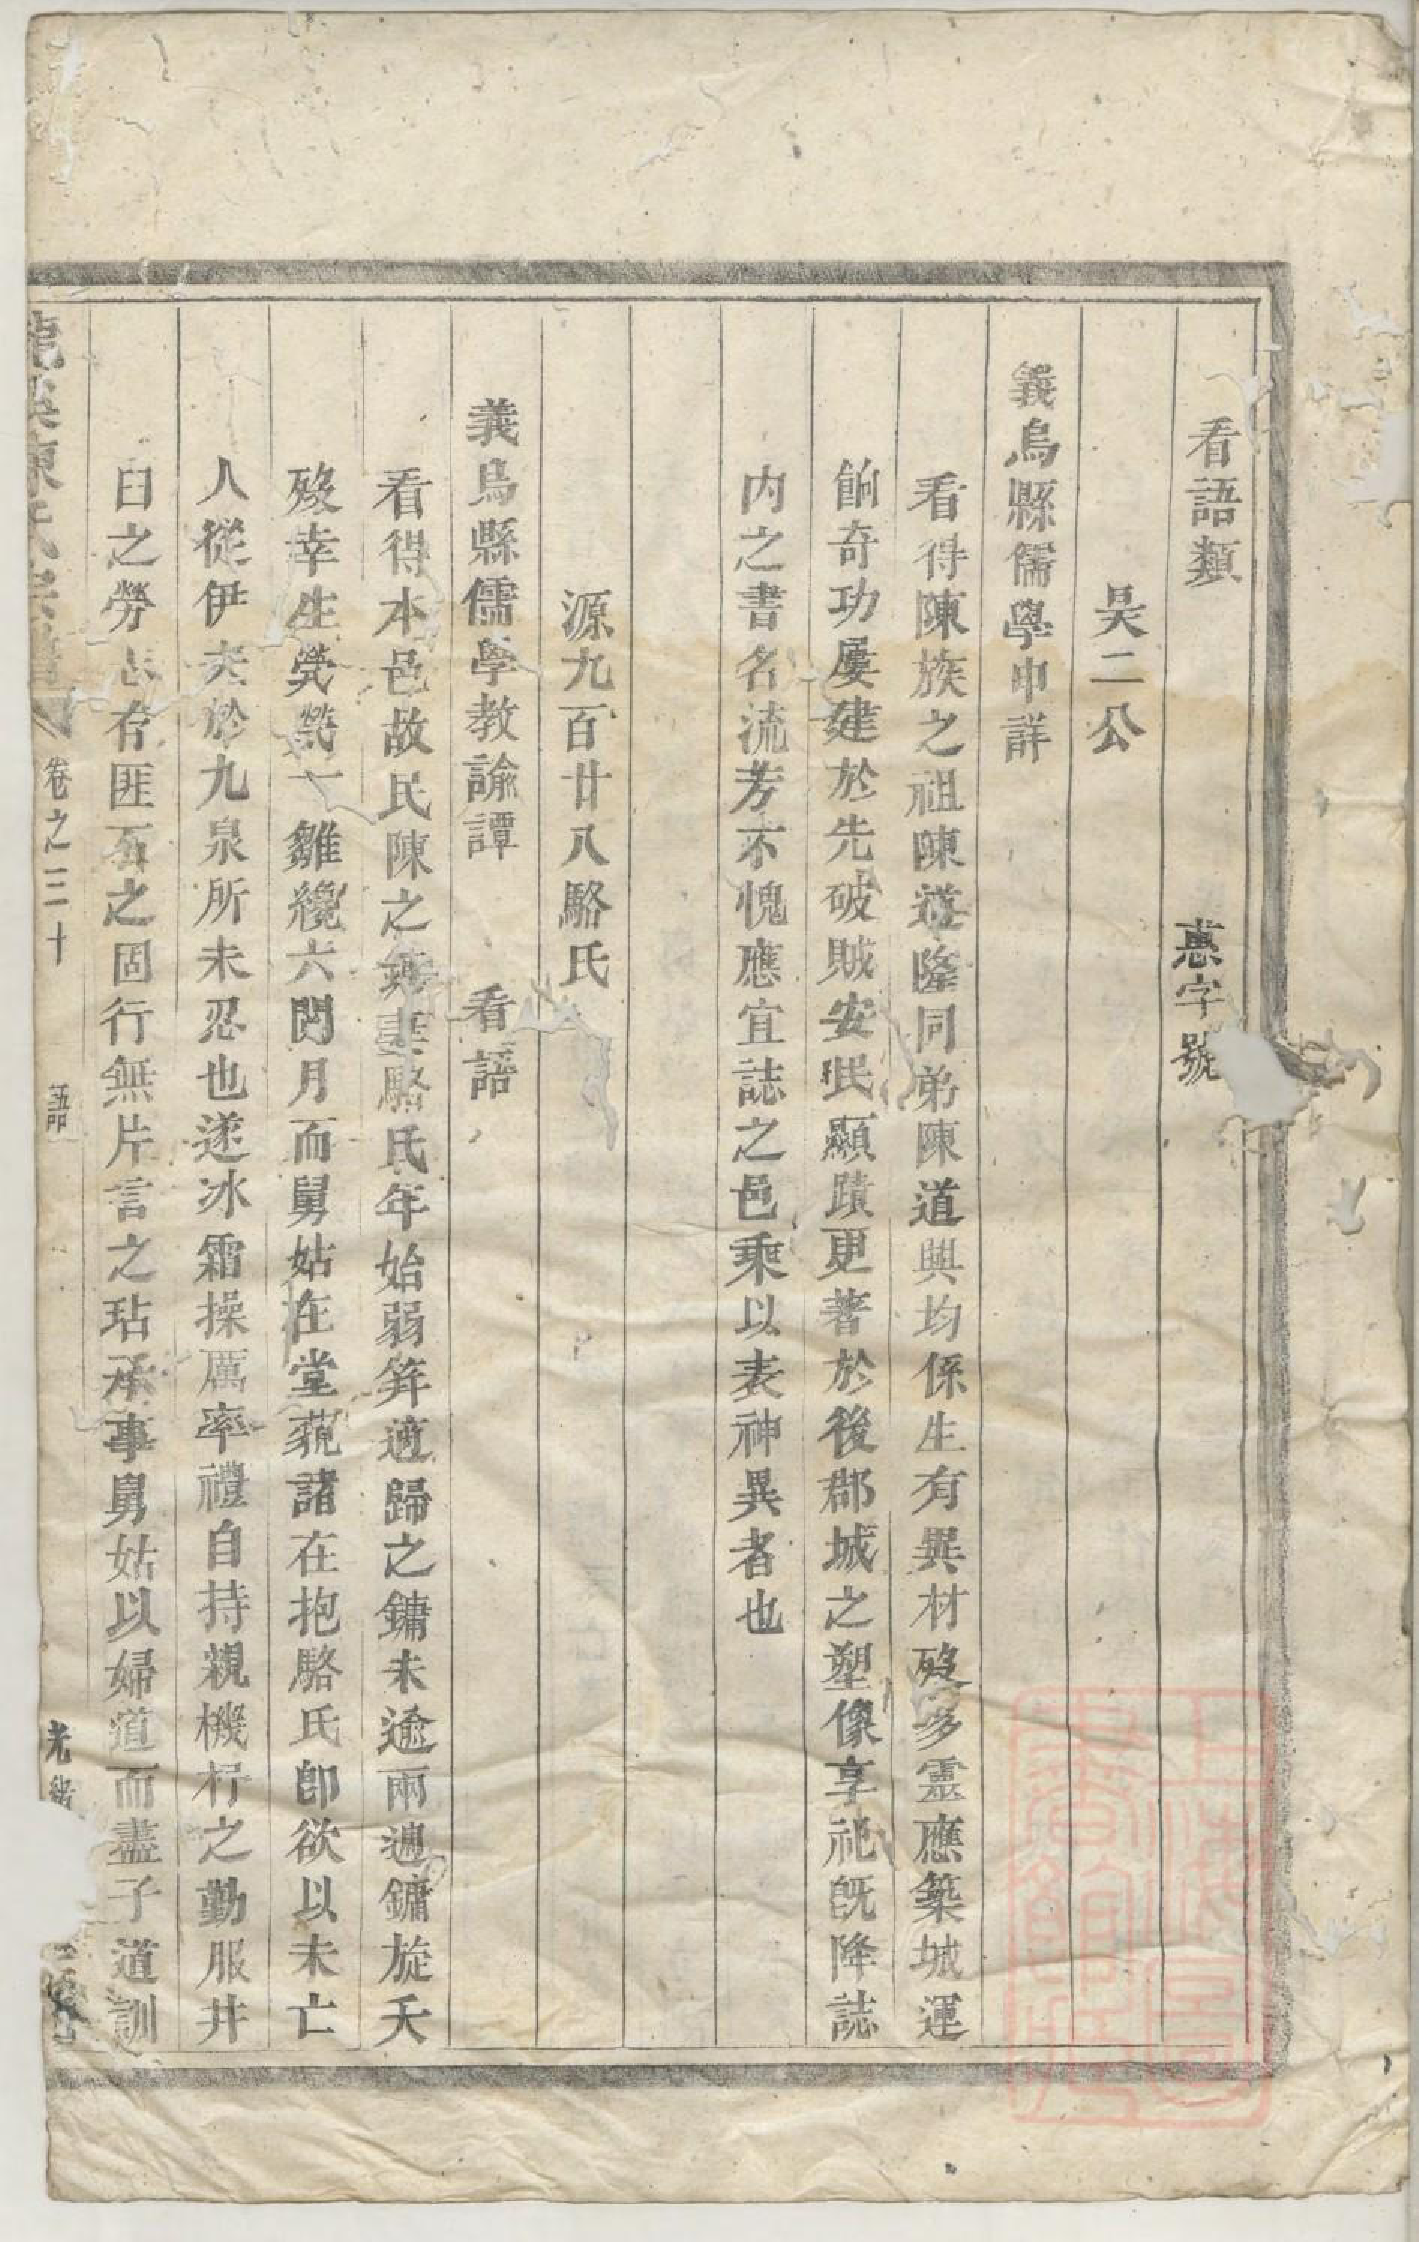 看語類　惠字號
吳二公
義烏縣儒學申詳
看得陳族之祖陳道隆同弟陳道興均係生有異材歿多靈應築城運
餉奇功屢建於先破賊安民顯蹟更著於後郡城之塑像享祀旣降誌
内之書名流芳不愧應宜誌之邑乘以表神異者也
源九百廿八駱氏
義烏縣儒學教諭譚　看語
看得本邑故民陳之鏞妻駱氏年始弱笄適歸之鏞未逾兩週鏞旋夭
歿幸生煢煢一雛纔六閱月而舅姑在堂藐諸在抱駱氏卽欲以未亡
人從伊夫於九泉所未忍也遂冰霜操厲率禮自持親機杼之勤服井
臼之勞志存匪石之固行無片言之玷承事舅姑以婦道而盡子道訓
龍溪陳氏宗譜　卷之三十　語　光緒
上海圖書館藏